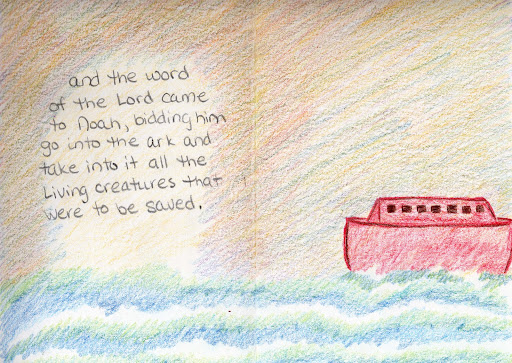 and the word
of the Lord came
to Noah, bidding him
go into the ark and
take into it all the
Living creatures that
were to be saved.